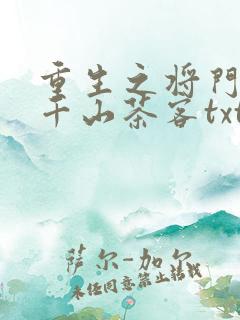 重生之将门
千山茶客txt
萨尔-加尔
未经同意禁止转载